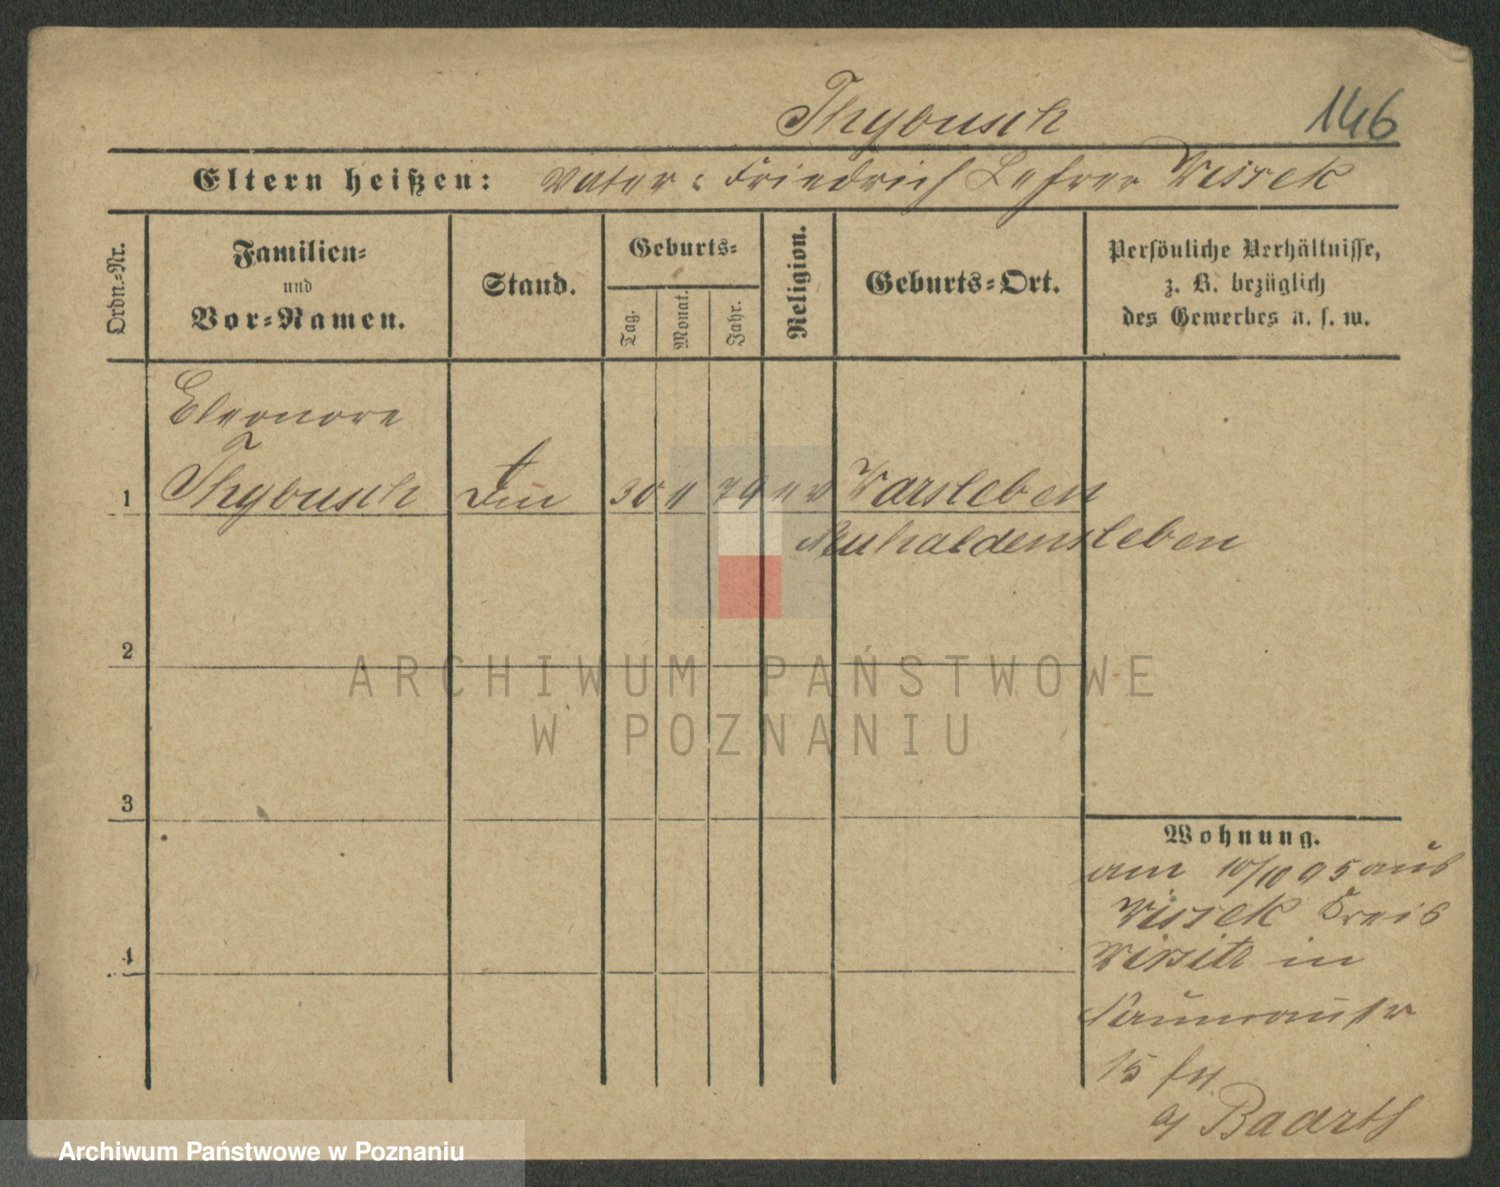 Thybusch
146
Eltern heißen: Vater: Friedrich Lehrer Wissek
Ordn.-Nr.
Familien-
und
Vor-Namen.
Stand.
Geburts-
Tag.
Monat.
Jahr.
Religion.
Geburts-Ort.
Persönliche Verhältnisse,
z. B. bezüglich
des Gewerbes u. s. w.
Eleonore
1 Thybusch 30 79 Warsleben
Neuhaldensleben
2
ARCHIWUM PAŃSTWOWE
W POZNANIU
3
Wohnung.
am 10/10 95 aus
Wissek Kreis
4
Wirsitz in
15
Baarth
Archiwum Państwowe w Poznaniu